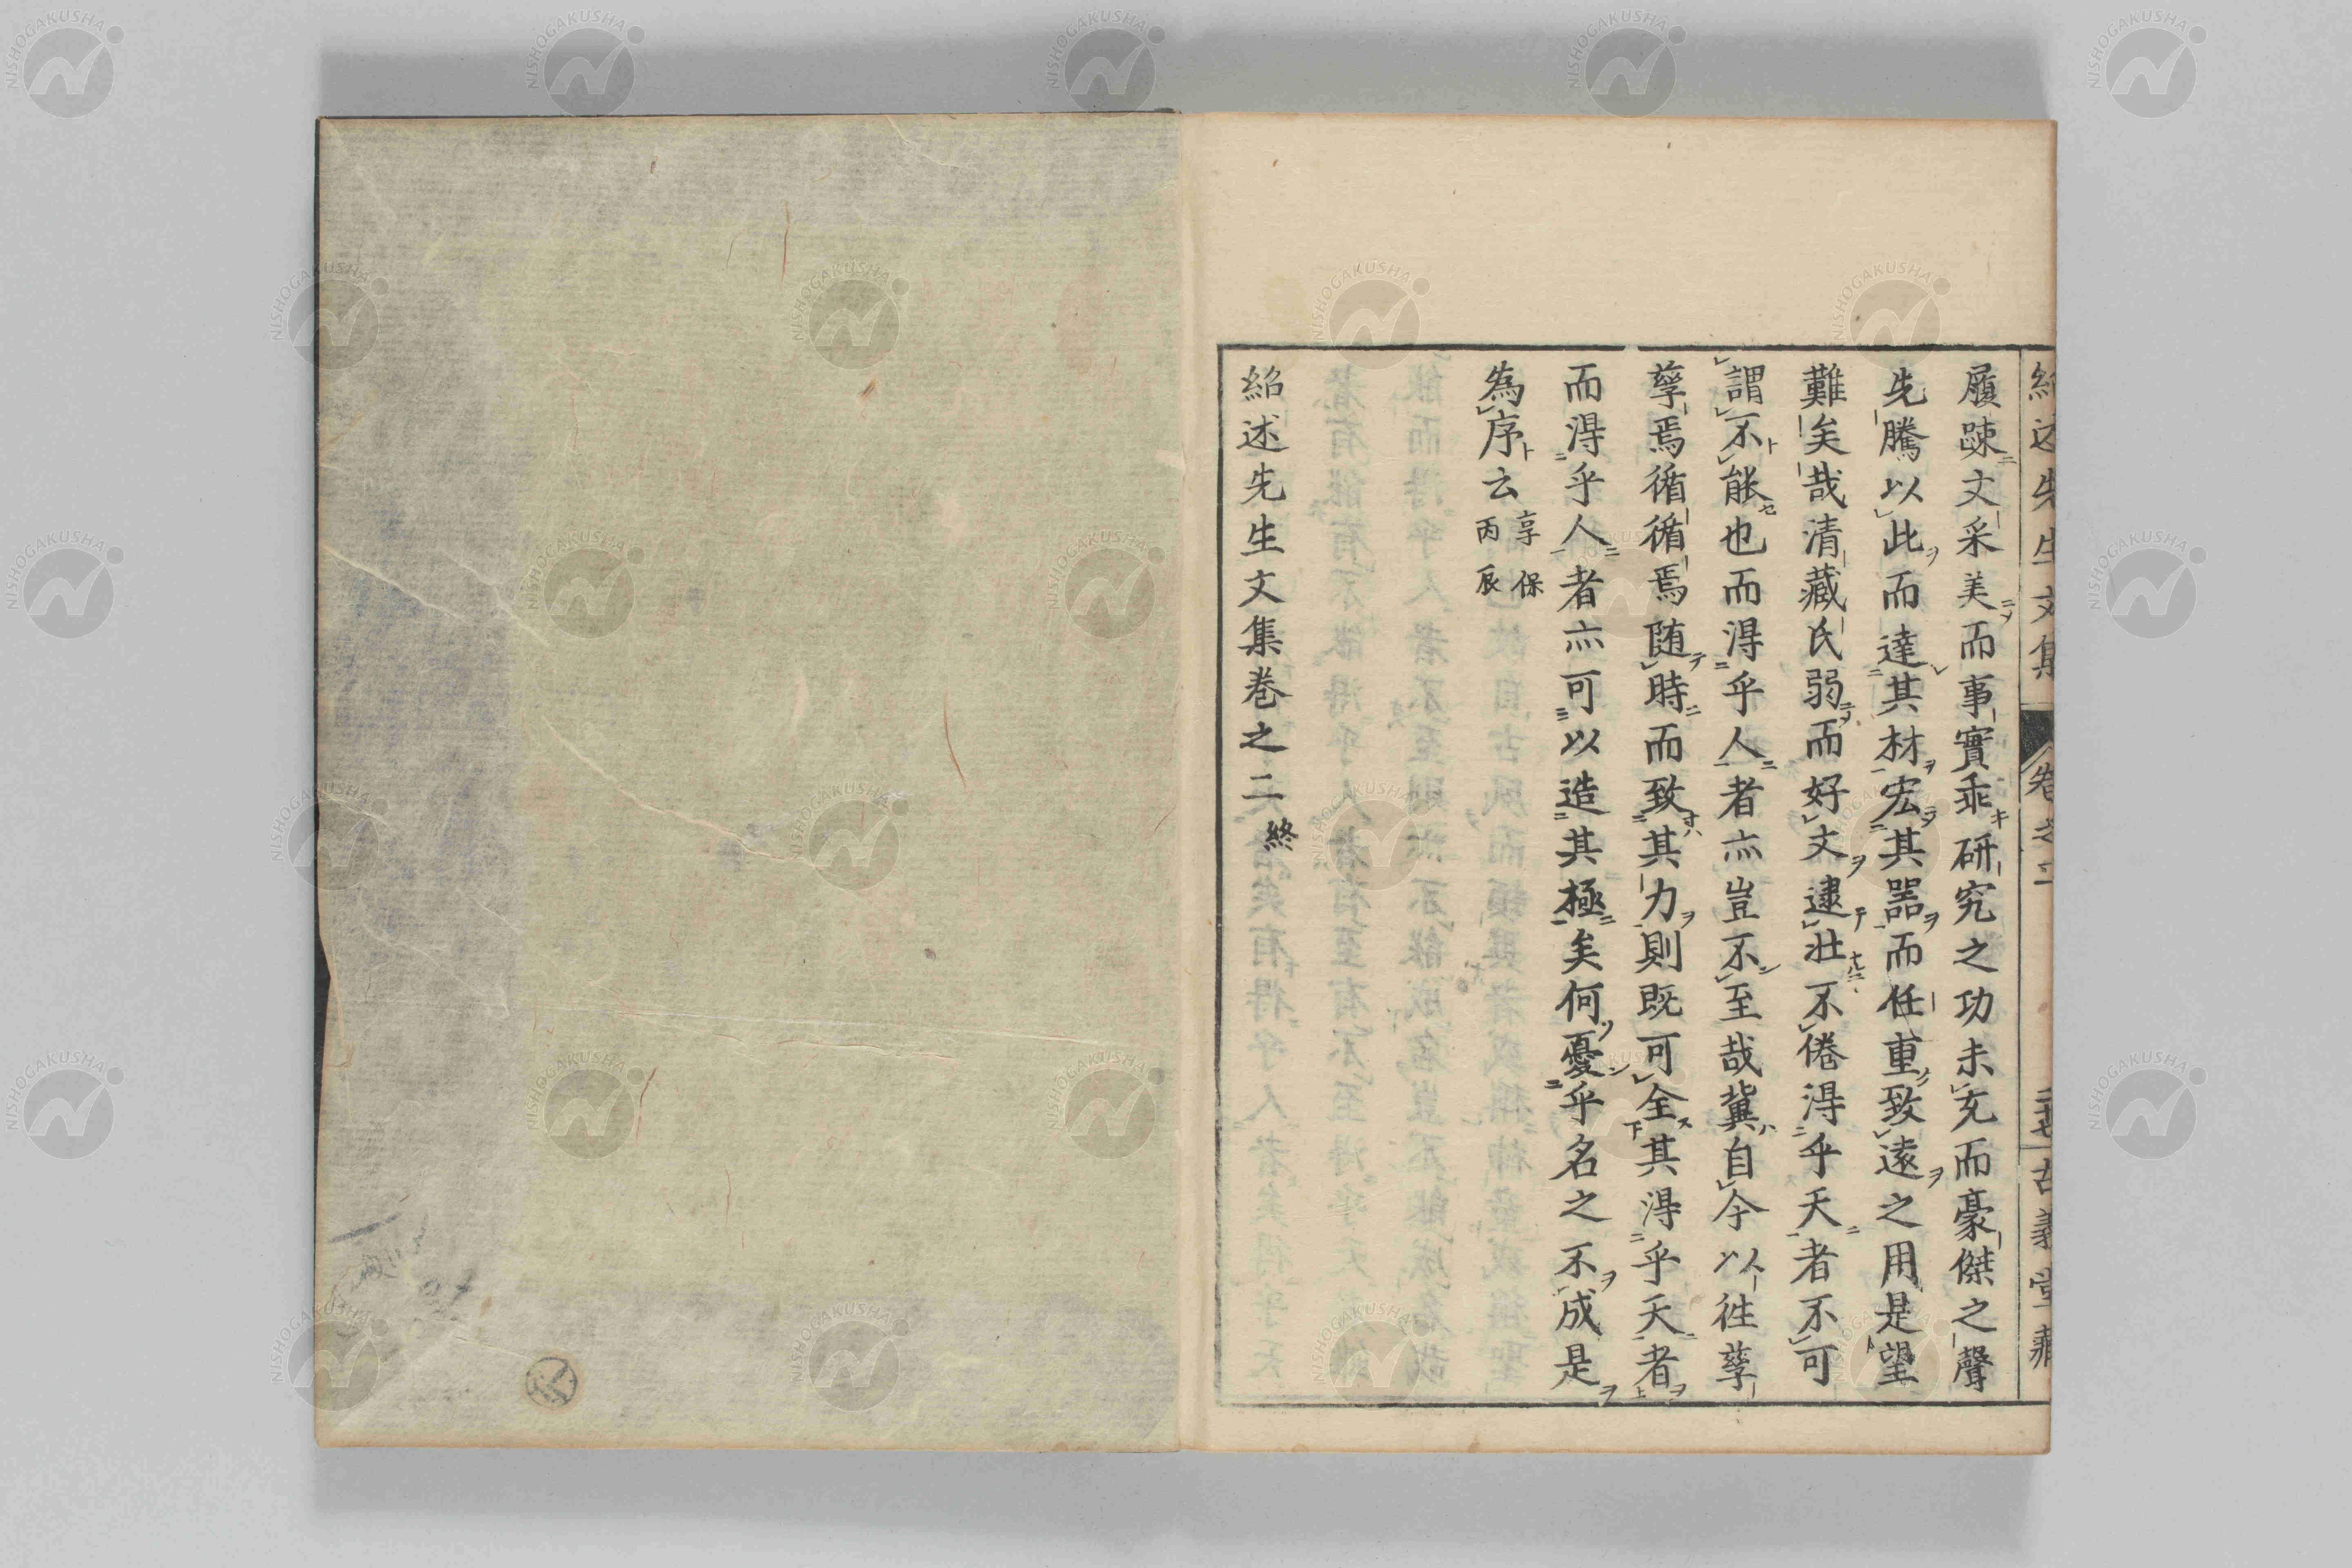 紹述先生文集 卷之二 二十七 古義堂藏
履踈文采美而事實乖研究之功未充而豪傑之聲
先騰以此而達其材宏其器而任重致遠之用是望
難矣哉清藏氏弱而好文逮壯不倦得乎天者不可
謂不能也而得乎人者亦豈不至哉冀自今以徃孳
孳焉循循焉随時而致其力則既可全其得乎天者
而得乎人者亦可以造其極矣何憂乎名之不成是
為序云 享保丙辰
紹述先生文集卷之二 終